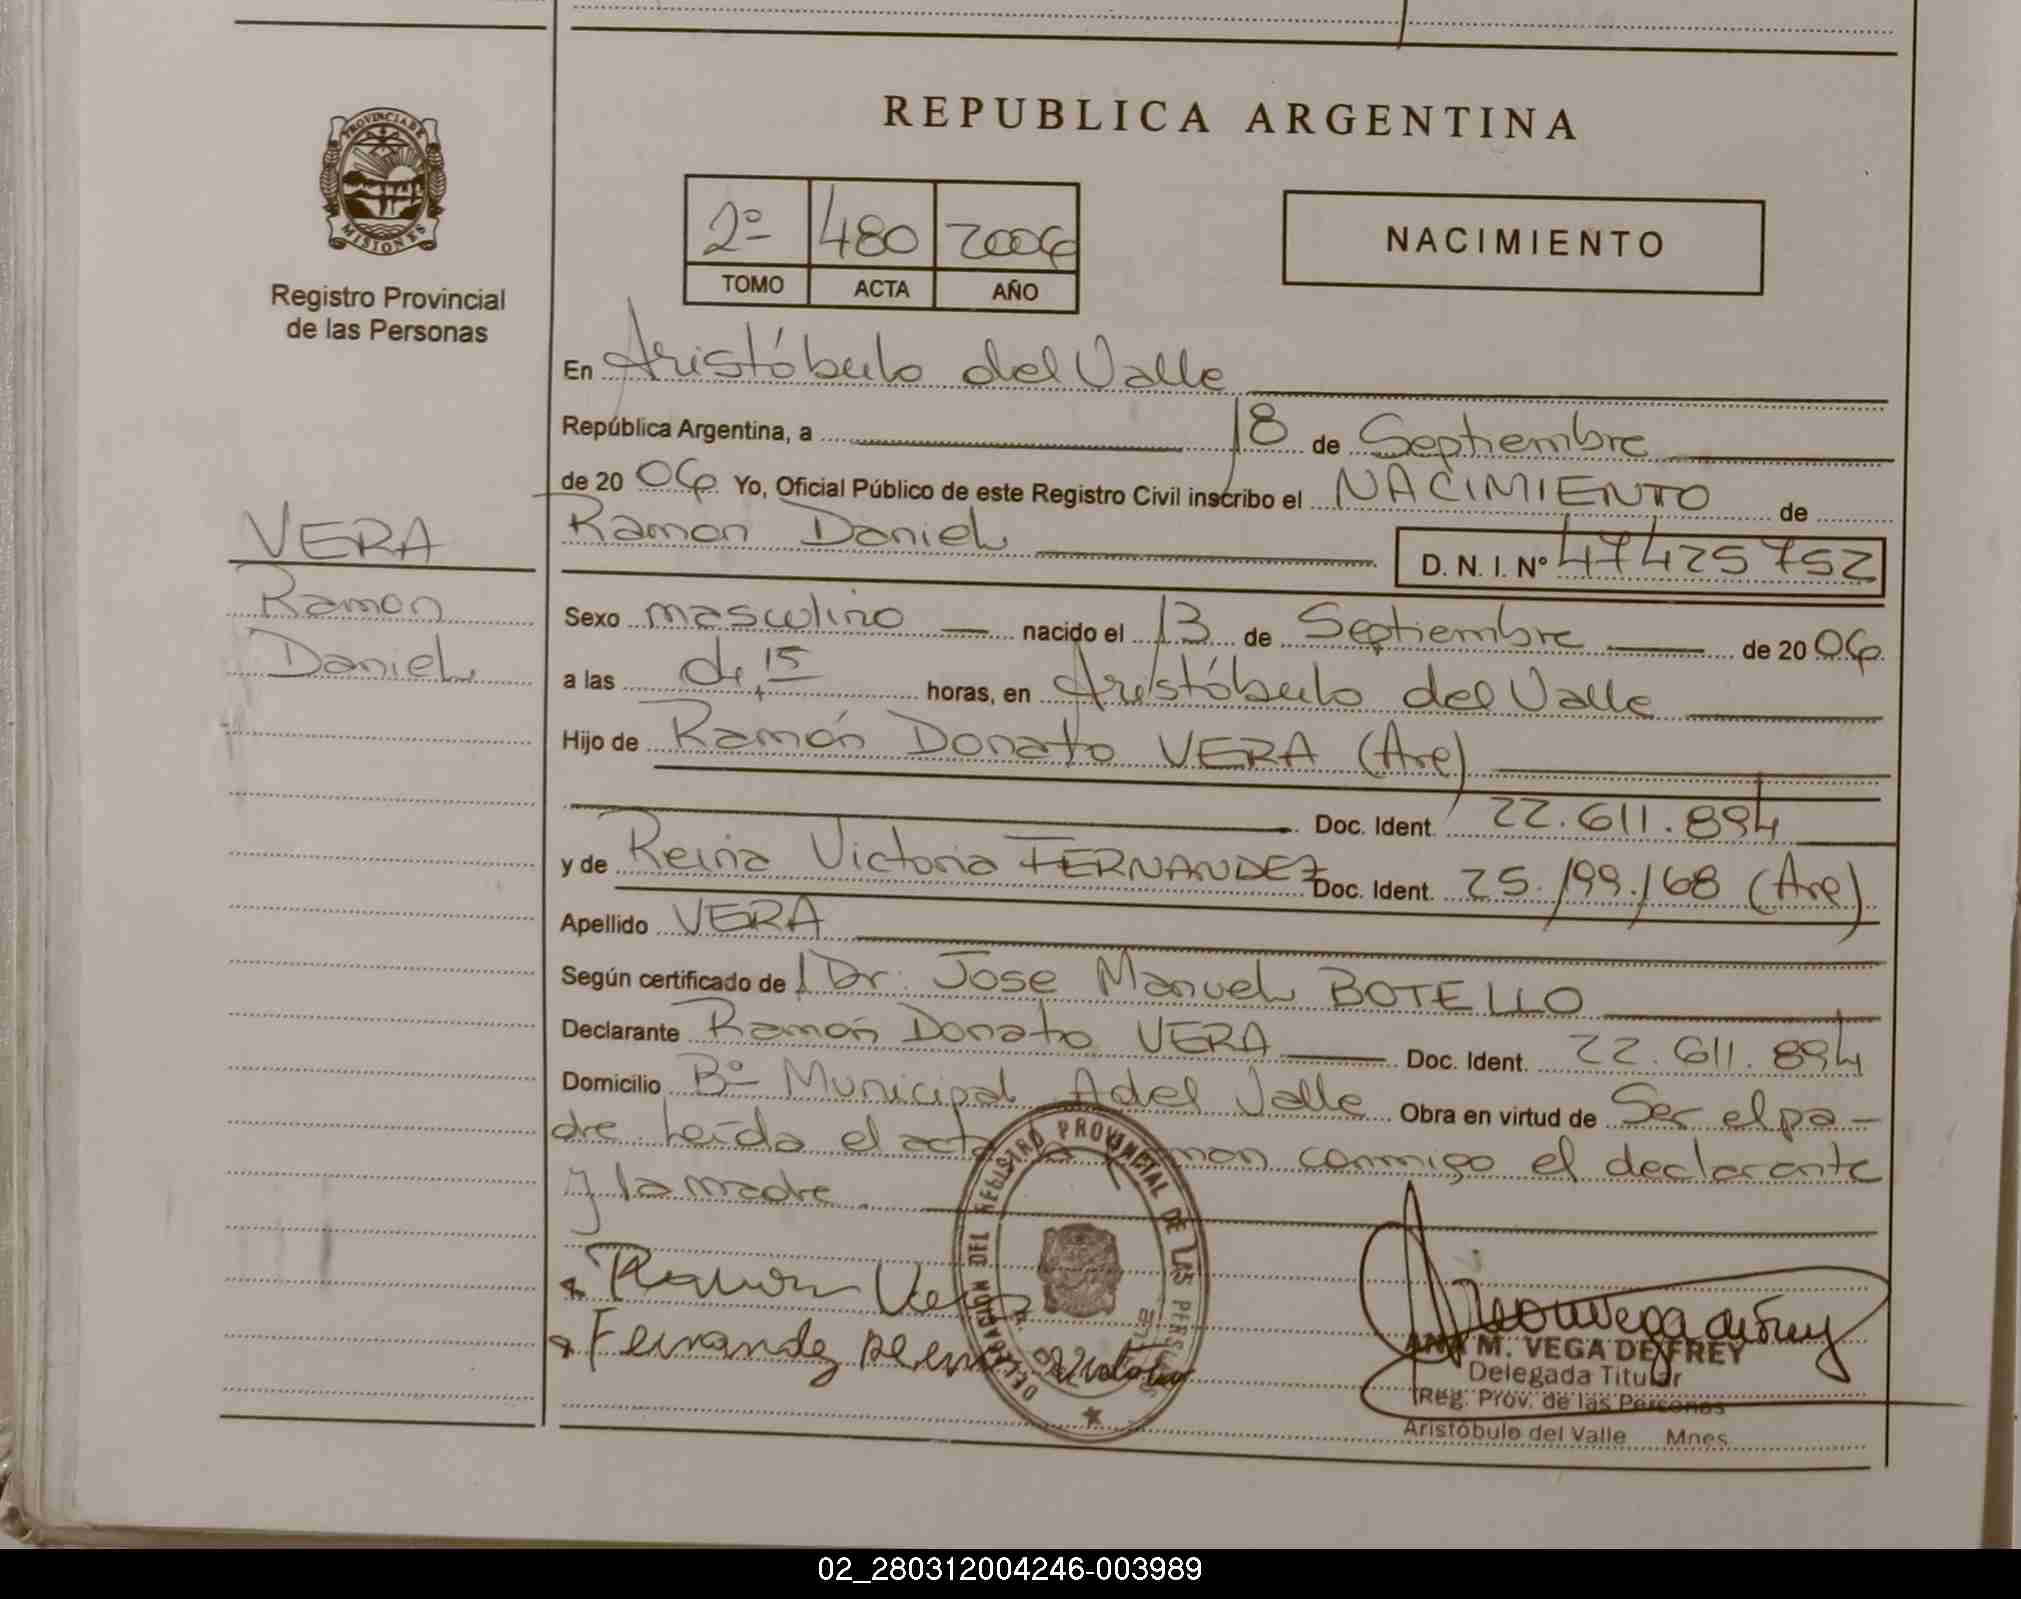 REPUBLICA ARGENTINA
PROVINCIA DE
MISIONES
Registro Provincial
de las Personas
2º 480 2006
TOMO ACTA AÑO
NACIMIENTO
En Aristóbulo del Valle
República Argentina, a 18 de Septiembre
de 2006 Yo, Oficial Público de este Registro Civil inscribo el NACIMIENTO de
Ramon Daniel D. N. I. Nº 47425752
VERA
Ramon
Daniel
Sexo masculino nacido el 13 de Septiembre de 2006
a las 15 horas, en Aristóbulo del Valle
Hijo de Ramón Donato VERA (Are)
Doc. Ident. 22.611.894
y de Reina Victoria FERNANDEZ Doc. Ident. 25.199.168 (Are)
Apellido VERA
Según certificado de l Dr. Jose Manuel BOTELLO
Declarante Ramón Donato VERA Doc. Ident. 22.611.894
Domicilio Bº Municipal A del Valle Obra en virtud de Ser el pa-
dre Leída el acta conmigo el declarante
y la madre
Ramon Vera
Fernandez Reina Victoria
DELEGACION DEL REGISTRO PROVINCIAL DE LAS PERSONAS
ANA M. VEGA DE FREY
Delegada Titular
Reg. Prov. de las Personas
Aristóbulo del Valle Mnes
02_280312004246-003989